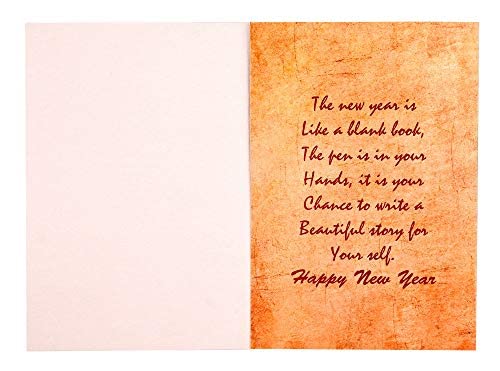 The new year is
Like a blank book,
The pen is in your
Hands, it is your
Chance to write a
Beautiful story for
Your self.
Happy New Year